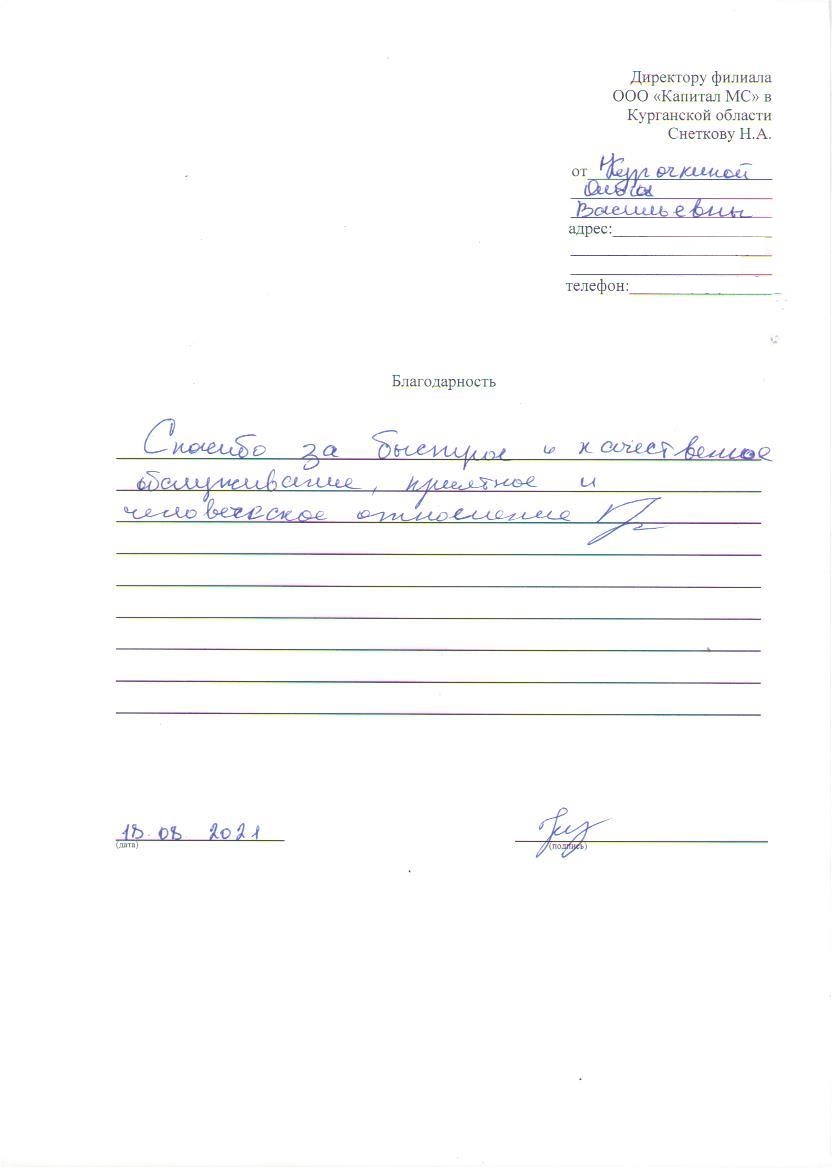 Директору филиала
ООО «Капитал МС» в
Курганской области
Снеткову Н.А.
от Курочкиной
Ольга
Васильевны
адрес:
телефон:
Благодарность
Спасибо за быстрое и качественное
обслуживание, приятное и
человеческое отношение
18.08 2021
(дата)
(подпись)